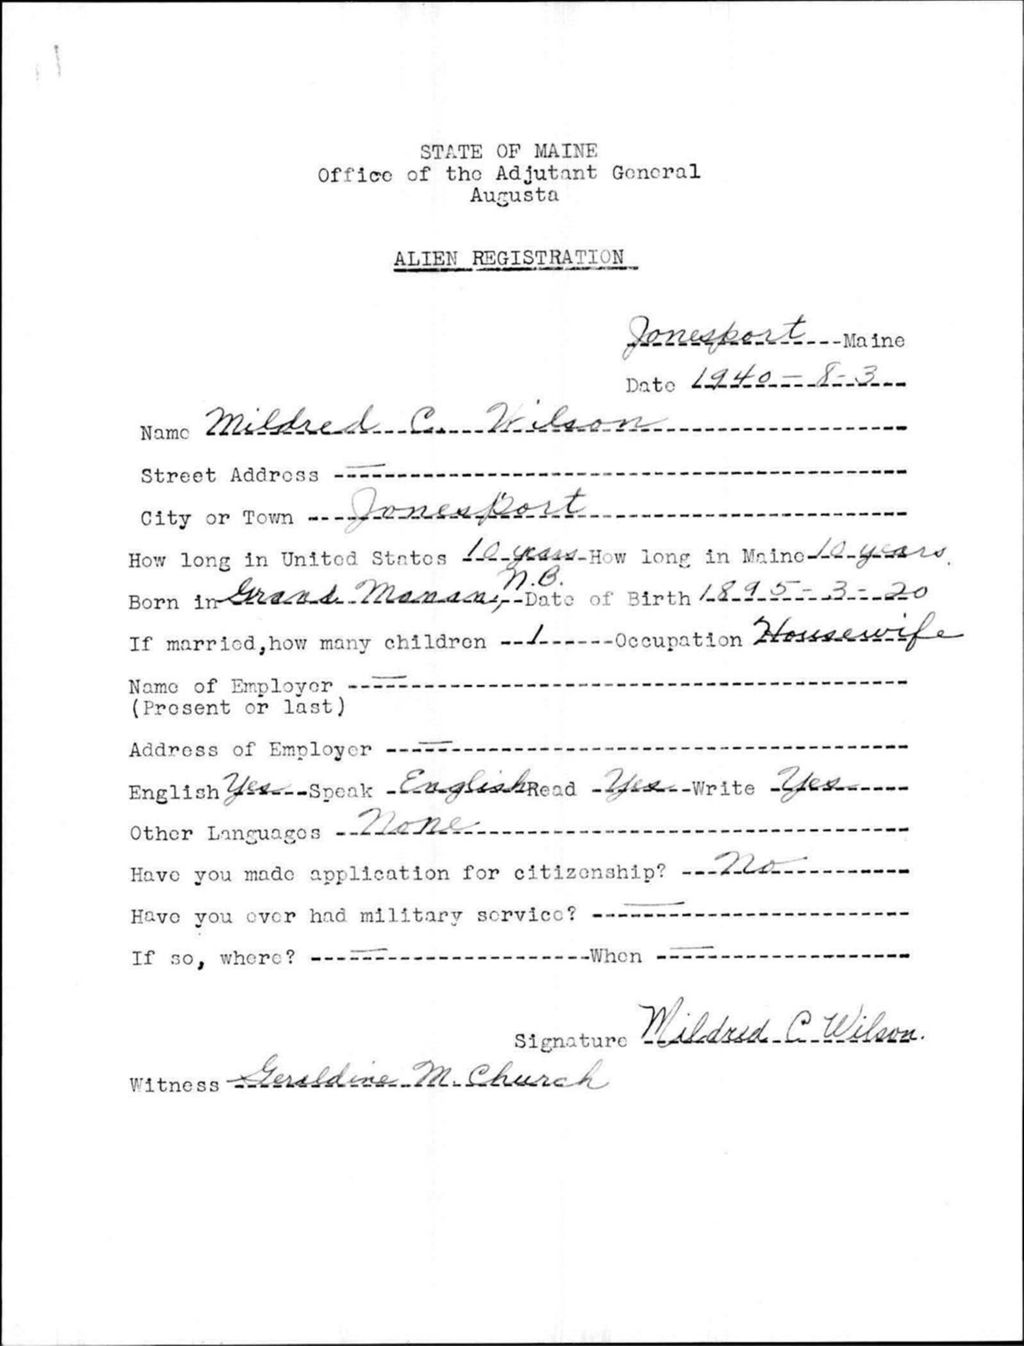 STATE OF MAINE
Office of the Adjutant General
Augusta
ALIEN REGISTRATION
Jonesport Maine
Date 1940-8-3
Name Mildred C. Wilson
Street Address —
City or Town Jonesport
How long in United States 10 years How long in Maine 10 years.
Born in Grand Manan, N.B. Date of Birth 1895-3-20
If married, how many children 1 Occupation Housewife
Name of Employer —
(Present or last)
Address of Employer —
English Yes Speak English Read Yes Write Yes
Other Languages None
Have you made application for citizenship? No
Have you ever had military service? —
If so, where? — When —
Signature Mildred C Wilson.
Witness Geraldine M. Church